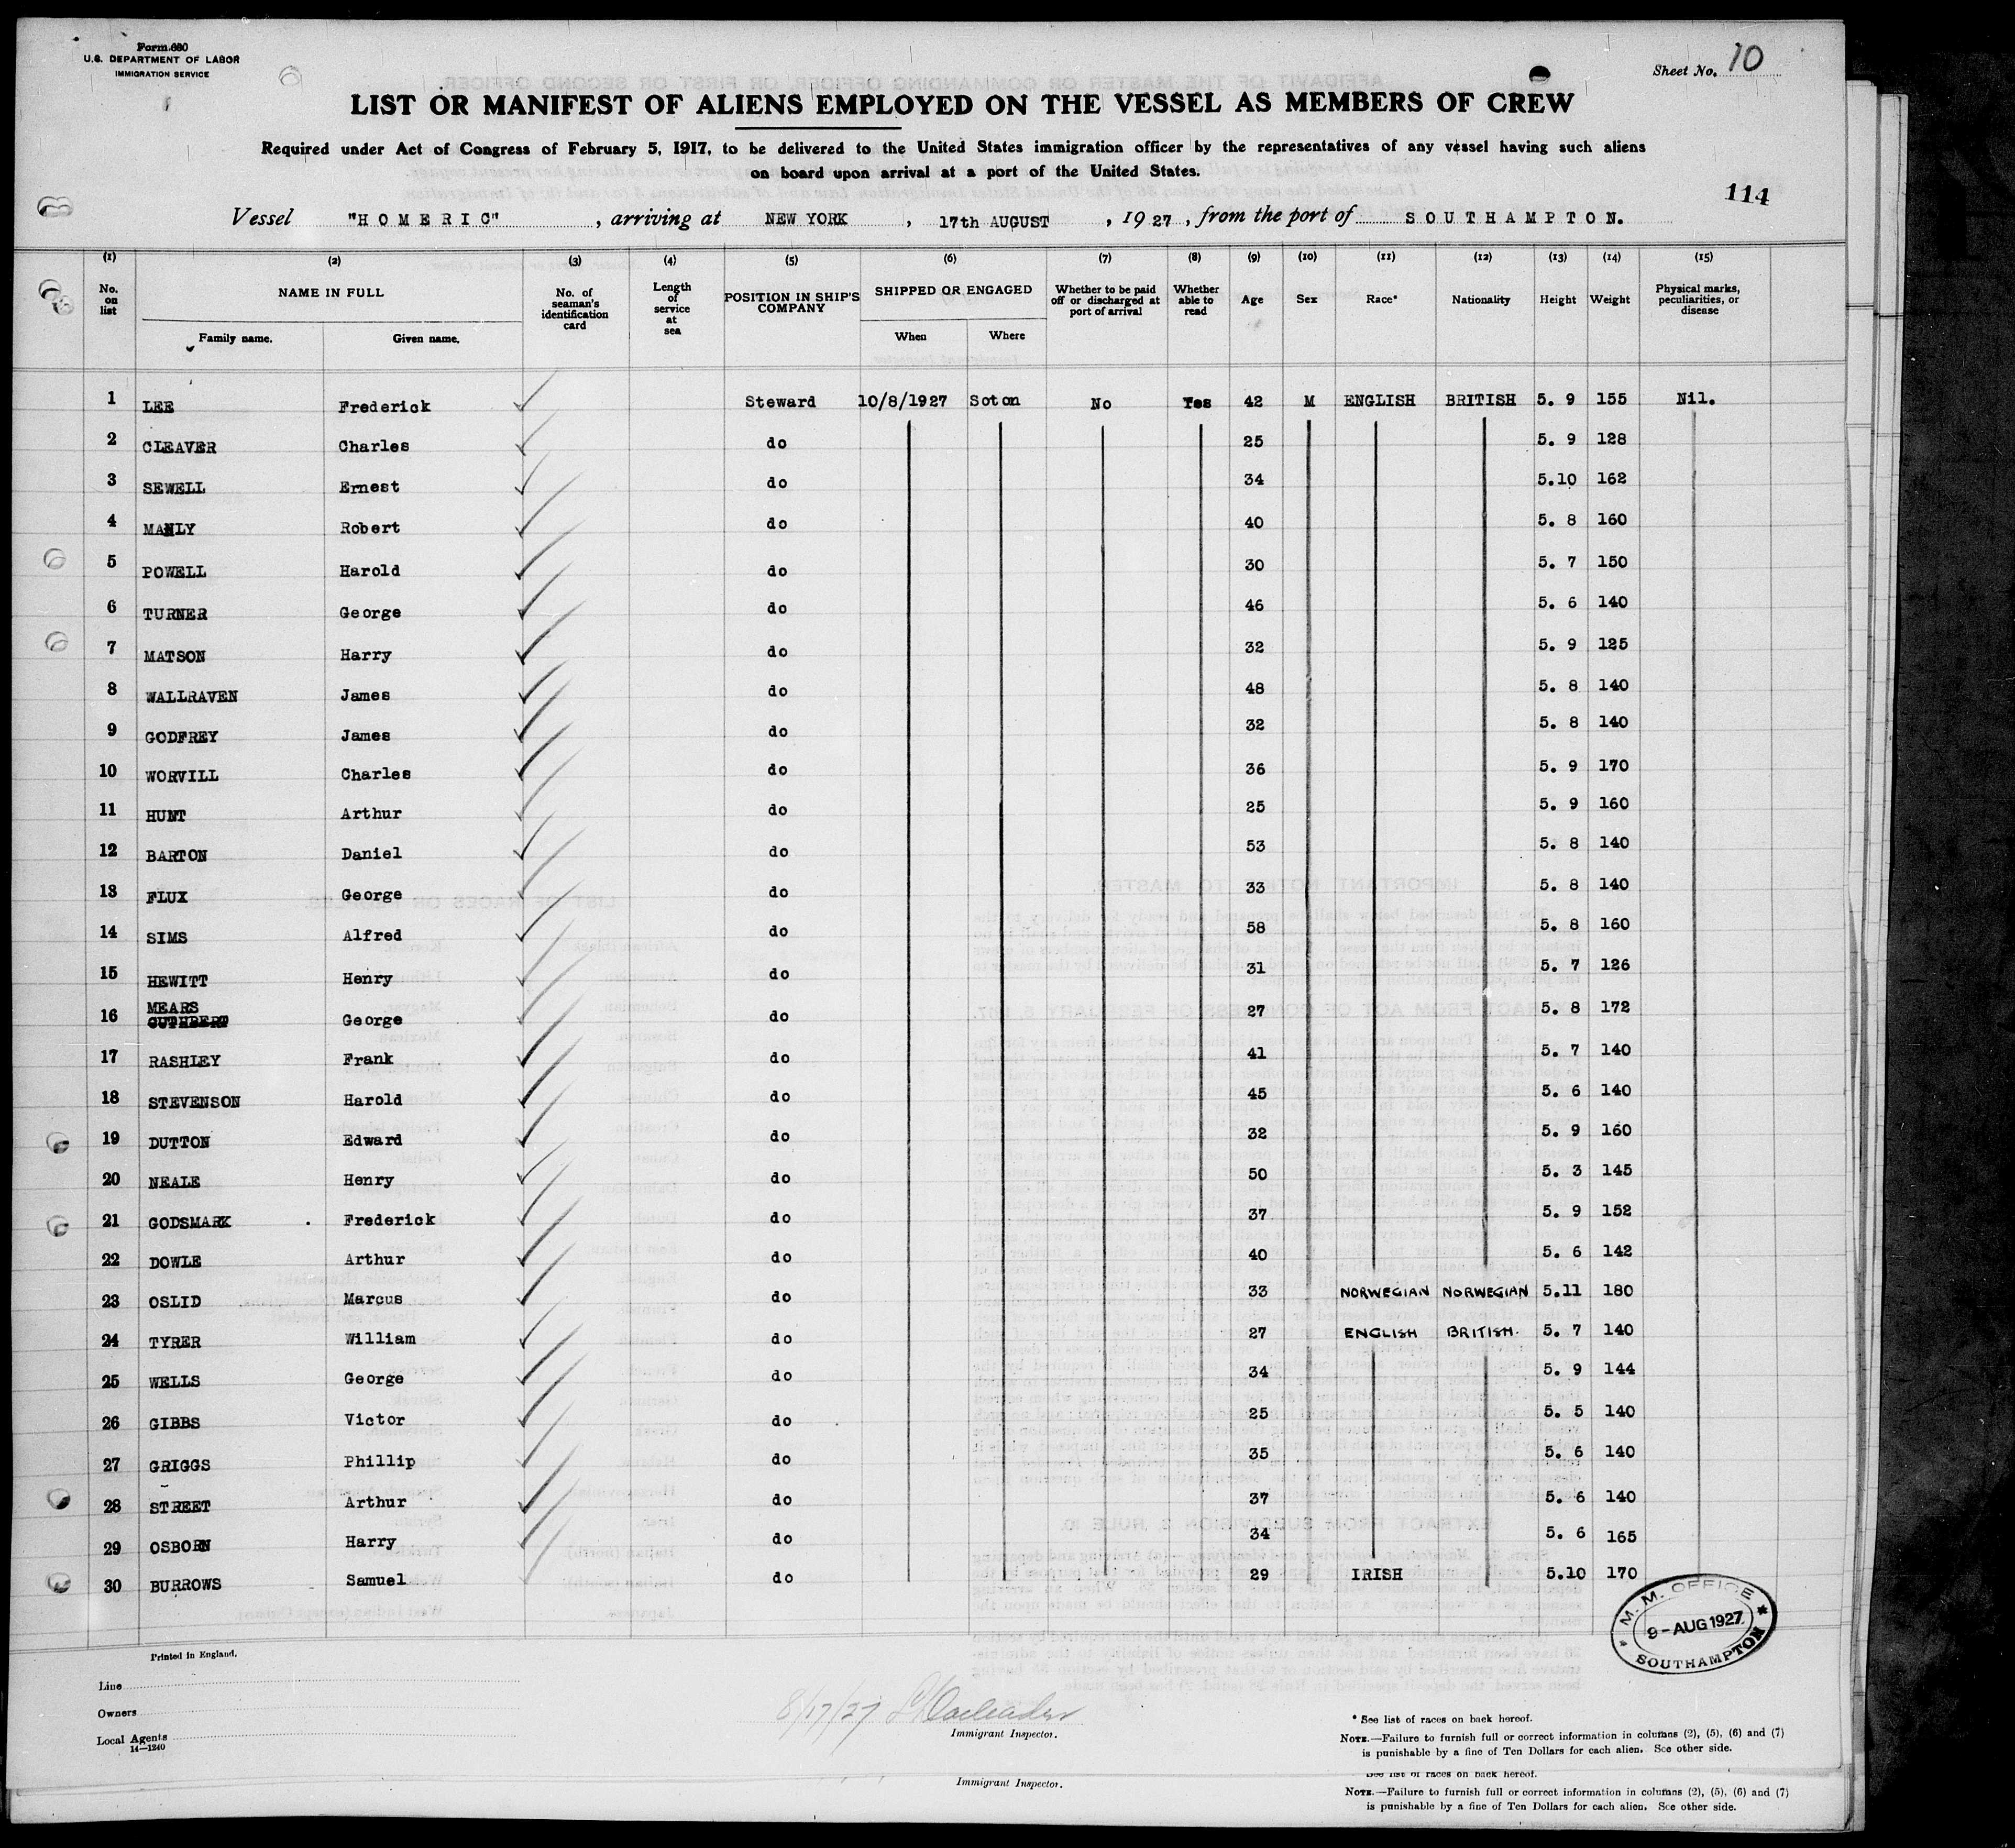 Form 680
U.S. DEPARTMENT OF LABOR
IMMIGRATION SERVICE
Sheet No. 10
LIST OR MANIFEST OF ALIENS EMPLOYED ON THE VESSEL AS MEMBERS OF CREW
Required under Act of Congress of February 5, 1917, to be delivered to the United States immigration officer by the representatives of any vessel having such aliens
on board upon arrival at a port of the United States.
114
Vessel "HOMERIC", arriving at NEW YORK, 17th AUGUST, 1927, from the port of SOUTHAMPTON.
(1) (2) (3) (4) (5) (6) (7) (8) (9) (10) (11) (12) (13) (14) (15)
No. on list NAME IN FULL Family name. Given name. No. of seaman's identification card Length of service at sea POSITION IN SHIP'S COMPANY SHIPPED OR ENGAGED When Where Whether to be paid off or discharged at port of arrival Whether able to read Age Sex Race* Nationality Height Weight Physical marks, peculiarities, or disease
1 LEE Frederick Steward 10/8/1927 Soton No Yes 42 M ENGLISH BRITISH 5. 9 155 Nil.
2 CLEAVER Charles do 25 5. 9 128
3 SEWELL Ernest do 34 5.10 162
4 MANLY Robert do 40 5. 8 160
5 POWELL Harold do 30 5. 7 150
6 TURNER George do 46 5. 6 140
7 MATSON Harry do 32 5. 9 125
8 WALLRAVEN James do 48 5. 8 140
9 GODFREY James do 32 5. 8 140
10 WORVILL Charles do 36 5. 9 170
11 HUNT Arthur do 25 5. 9 160
12 BARTON Daniel do 53 5. 8 140
13 FLUX George do 33 5. 8 140
14 SIMS Alfred do 58 5. 8 160
15 HEWITT Henry do 31 5. 7 126
16 MEARS CUTHBERT George do 27 5. 8 172
17 RASHLEY Frank do 41 5. 7 140
18 STEVENSON Harold do 45 5. 6 140
19 DUTTON Edward do 32 5. 9 160
20 NEALE Henry do 50 5. 3 145
21 GODSMARK Frederick do 37 5. 9 152
22 DOWLE Arthur do 40 5. 6 142
23 OSLID Marcus do 33 NORWEGIAN NORWEGIAN 5.11 180
24 TYRER William do 27 ENGLISH BRITISH. 5. 7 140
25 WELLS George do 34 5. 9 144
26 GIBBS Victor do 25 5. 5 140
27 GRIGGS Phillip do 35 5. 6 140
28 STREET Arthur do 37 5. 6 140
29 OSBORN Harry do 34 5. 6 165
30 BURROWS Samuel do 29 IRISH 5.10 170
M. M. OFFICE
9-AUG 1927
SOUTHAMPTON
Printed in England.
Line
Owners
Local Agents
14—1240
8/17/27
Immigrant Inspector.
* See list of races on back hereof.
NOTE.—Failure to furnish full or correct information in columns (2), (5), (6) and (7)
is punishable by a fine of Ten Dollars for each alien. See other side.
Immigrant Inspector.
See list of races on back hereof.
NOTE.—Failure to furnish full or correct information in columns (2), (5), (6) and (7)
is punishable by a fine of Ten Dollars for each alien. See other side.